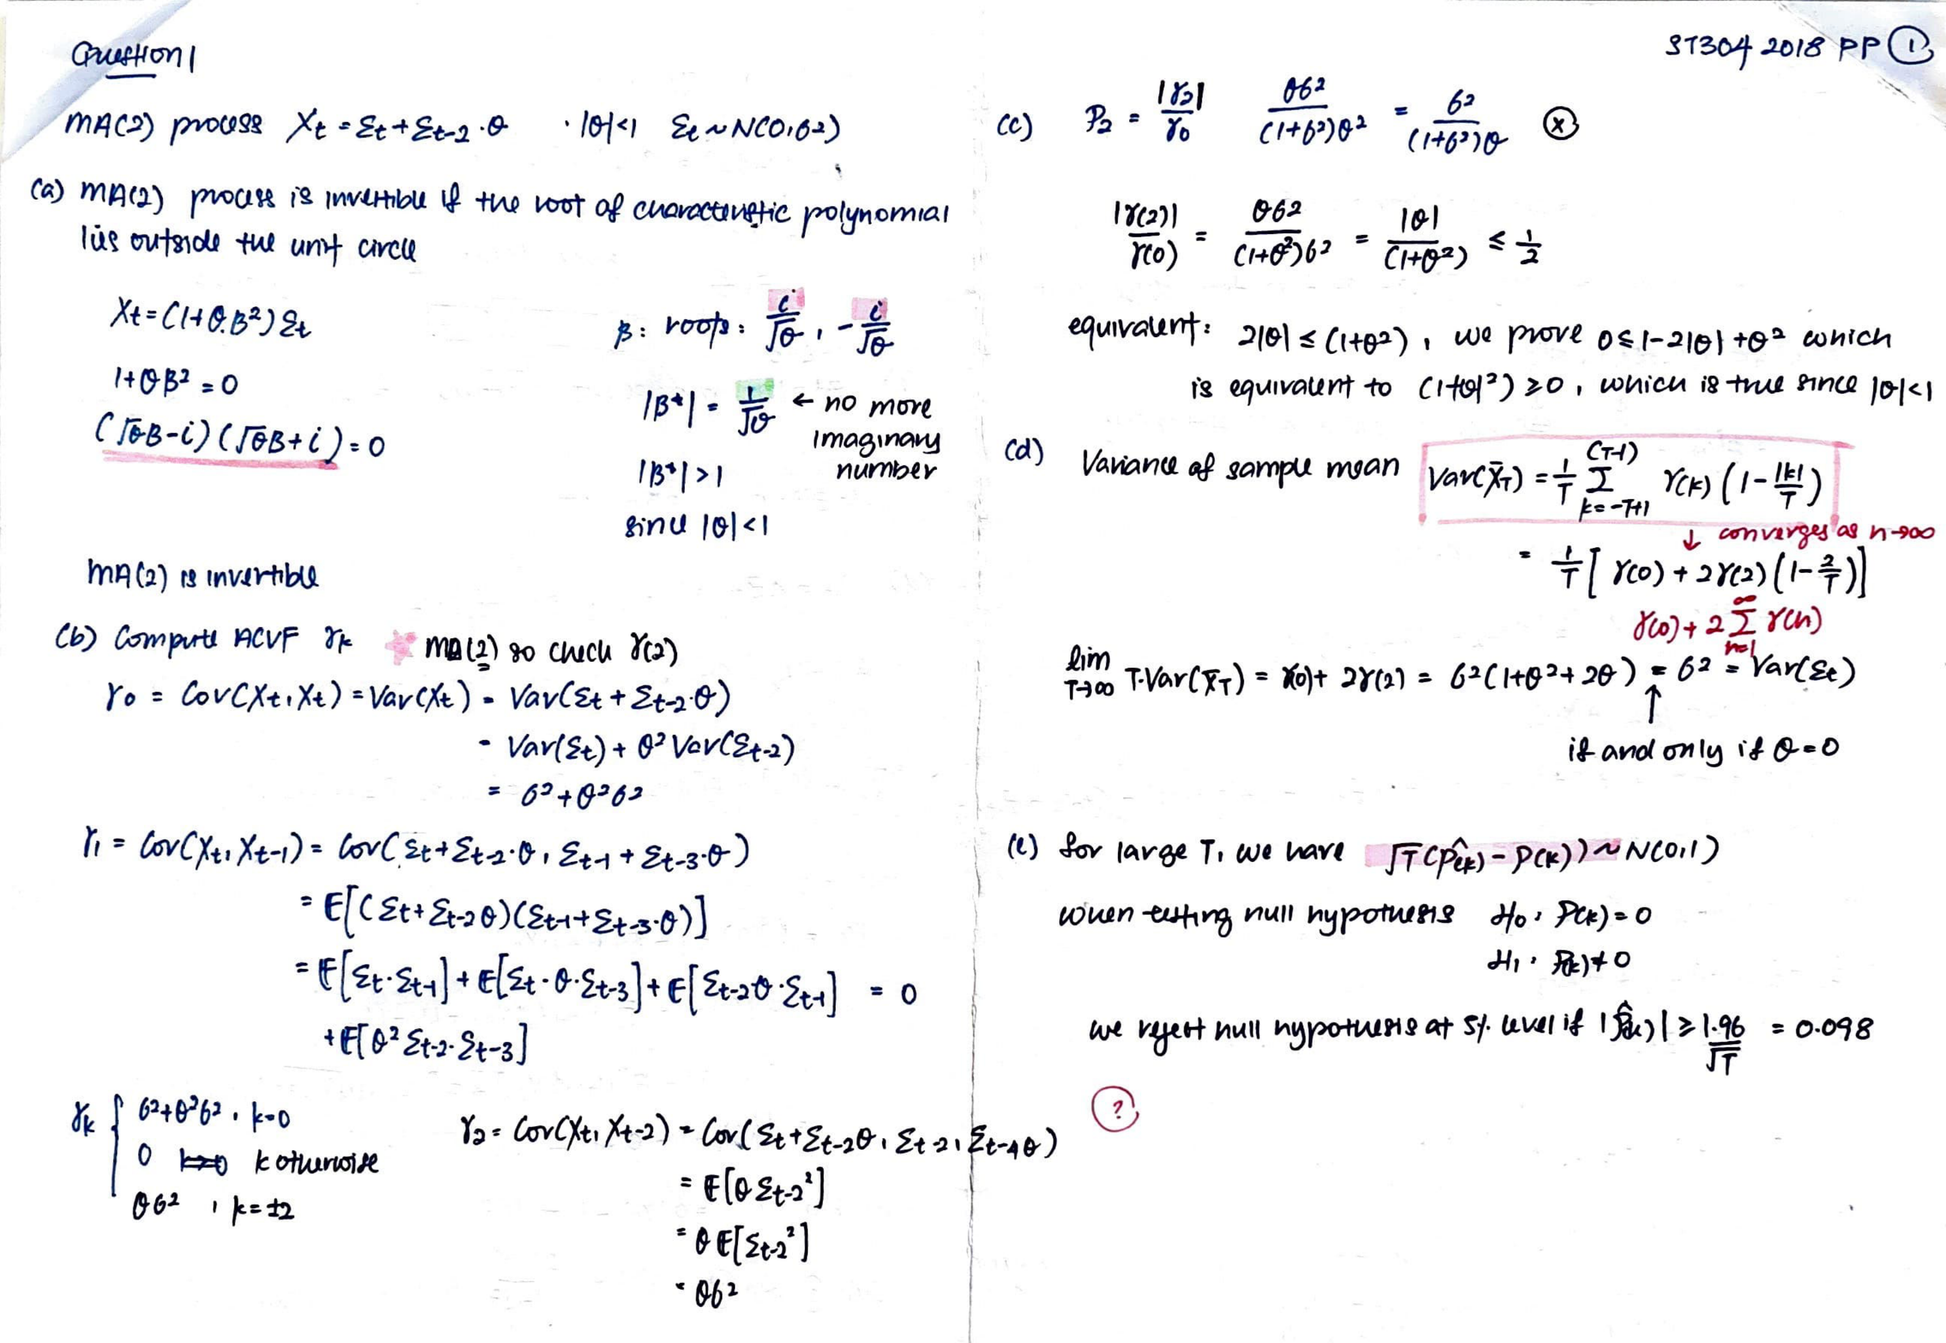 Question 1
ST304 2018 PP ①
MA(2) process Xt = Σt + Σt-2·θ · |θ|<1 Σt ~ N(0,6²)
(a) MA(2) process is invertible if the root of characteristic polynomial
lies outside the unit circle
Xt = (1+θ.B²) Σt
1+θB² = 0
(√θB-i)(√θB+i) = 0
B: roots: i/√θ, -i/√θ
|B*| = 1/√θ ← no more
imaginary
number
|B*| > 1
since |θ|<1
MA(2) is invertible
(b) Compute ACVF γk MA(2) so check γ(2)
γ0 = Cov(Xt, Xt) = Var(Xt) = Var(Σt + Σt-2·θ)
= Var(Σt) + θ² Var(Σt-2)
= 6² + θ²6²
γ1 = Cov(Xt, Xt-1) = Cov(Σt + Σt-2·θ, Σt-1 + Σt-3·θ)
= E[(Σt + Σt-2θ)(Σt-1 + Σt-3·θ)]
= E[Σt·Σt-1] + E[Σt·θ·Σt-3] + E[Σt-2θ·Σt-1] = 0
+ E[θ²Σt-2·Σt-3]
γk { 6²+θ²6², k=0
0 k otherwise
θ6², k=±2
γ2 = Cov(Xt, Xt-2) = Cov(Σt + Σt-2θ, Σt-2, Σt-4θ)
= E[θΣt-2²]
= θE[Σt-2²]
= θ6²
(c) P2 = |γ2|/γ0 θ6²/(1+6²)θ² = 6²/(1+6²)θ ⊗
|γ(2)|/γ(0) = θ6²/(1+θ²)6² = |θ|/(1+θ²) ≤ 1/2
equivalent: 2|θ| ≤ (1+θ²), we prove 0≤1-2|θ|+θ² which
is equivalent to (1+|θ|²) ≥ 0, which is true since |θ|<1
(d) Variance of sample mean Var(X̄T) = 1/T Σ(T-1) k=-T+1 γ(k) (1-|k|/T)
↓ converges as n→∞
= 1/T [γ(0) + 2γ(2)(1-2/T)]
γ(0) + 2 Σ∞ h=1 γ(h)
lim T→∞ T·Var(X̄T) = γ(0) + 2γ(2) = 6²(1+θ²+2θ) = 6² = Var(Σt)
↑
if and only if θ=0
(e) for large T, we have √T(ρ̂(k) - ρ(k)) ~ N(0,1)
when testing null hypothesis H0: ρ(k) = 0
H1: ρ(k) ≠ 0
we reject null hypothesis at 5% level if |ρ̂(k)| ≥ 1.96/√T = 0.098
?